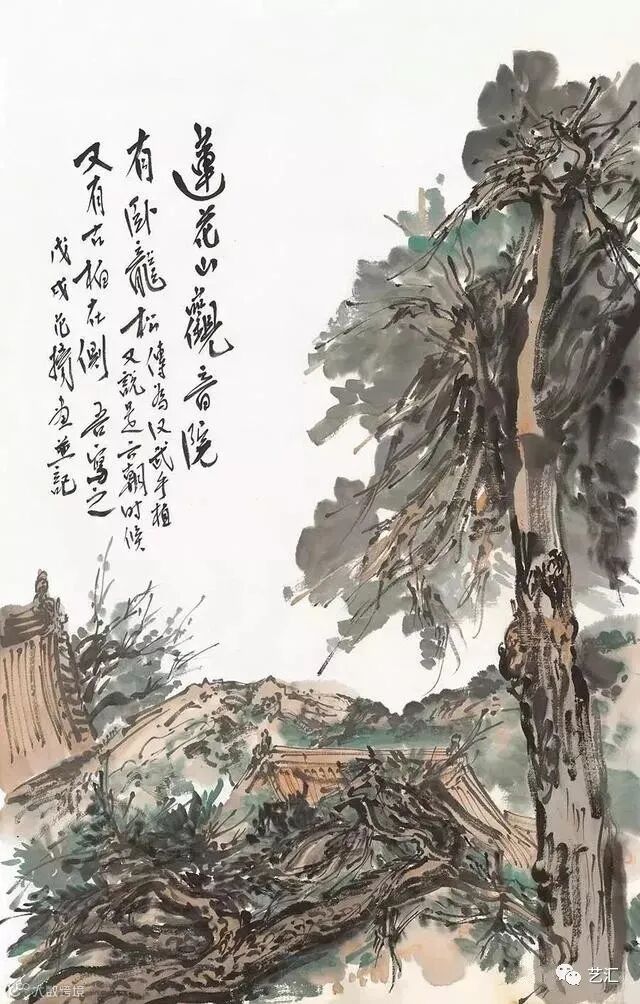 蓮花山觀音院
有卧龍松
傳為汉武手植
又說是六朝时候
又有古柏在側 吾寫之
戊戌范揚画並記
大数跨境
艺汇